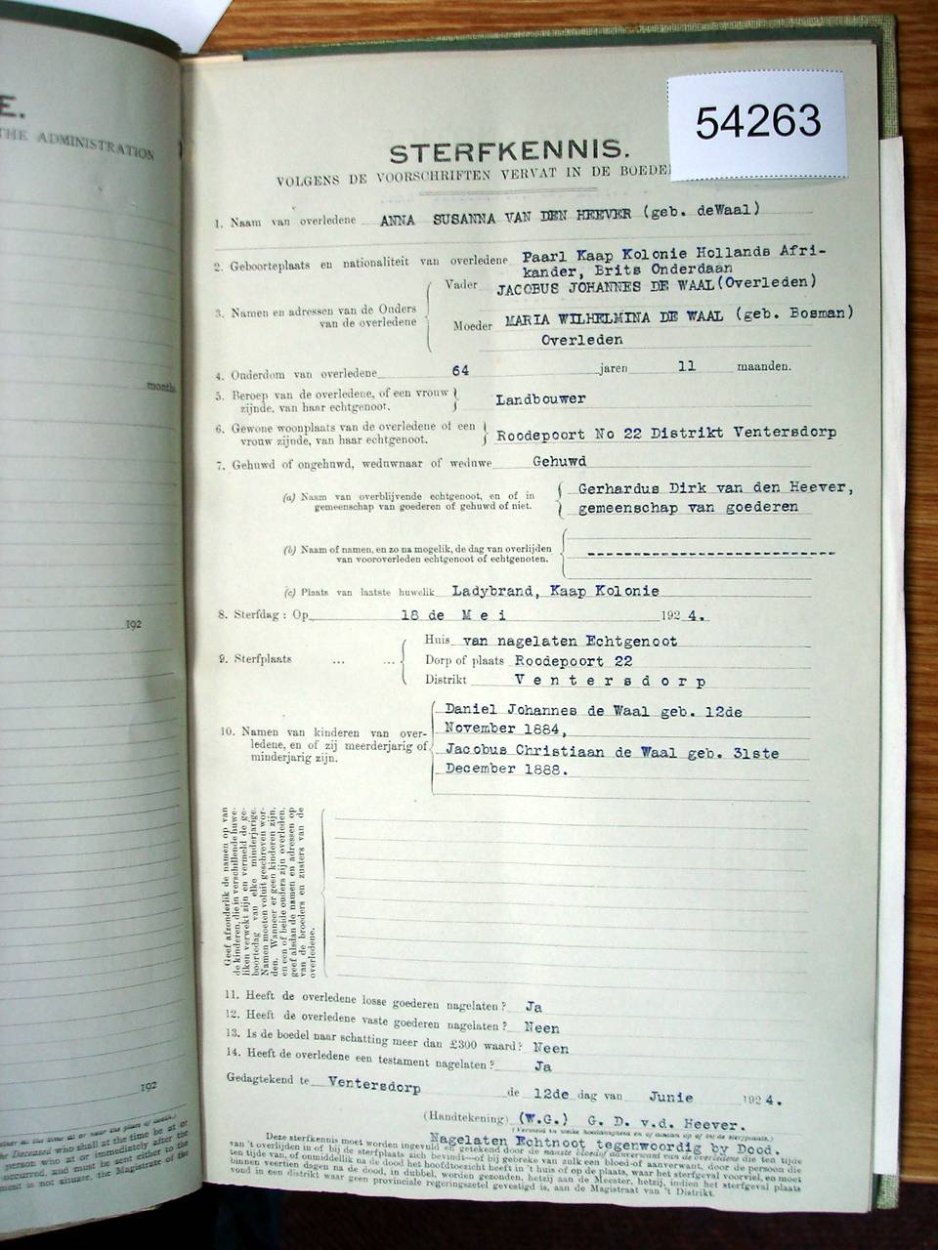 E.
THE ADMINISTRATION
months.
192
192
54263
STERFKENNIS.
VOLGENS DE VOORSCHRIFTEN VERVAT IN DE BOEDE
1. Naam van overledene ANNA SUSANNA VAN DEN HEEVER (geb. deWaal)
2. Geboorteplaats en nationaliteit van overledene Paarl Kaap Kolonie Hollands Afri-
kander, Brits Onderdaan
3. Namen en adressen van de Ouders
van de overledene
Vader JACOBUS JOHANNES DE WAAL (Overleden)
Moeder MARIA WILHELMINA DE WAAL (geb. Bosman)
Overleden
4. Onderdom van overledene 64 jaren 11 maanden.
5. Beroep van de overledene, of een vrouw
zijnde, van haar echtgenoot. Landbouwer
6. Gewone woonplaats van de overledene of een
vrouw zijnde, van haar echtgenoot. Roodepoort No 22 Distrikt Ventersdorp
7. Gehuwd of ongehuwd, weduwnaar of weduwe Gehuwd
(a) Naam van overblijvende echtgenoot, en of in
gemeenschap van goederen of gehuwd of niet.
Gerhardus Dirk van den Heever,
gemeenschap van goederen
(b) Naam of namen, en zo na mogelik, de dag van overlijden
van vooroverleden echtgenoot of echtgenoten.
(c) Plaats van laatste huwelik Ladybrand, Kaap Kolonie
8. Sterfdag : Op 18 de M e i 192 4.
9. Sterfplaats ... ...
Huis van nagelaten Echtgenoot
Dorp of plaats Roodepoort 22
Distrikt V e n t e r s d o r p
10. Namen van kinderen van over-
ledene, en of zij meerderjarig of
minderjarig zijn.
Daniel Johannes de Waal geb. 12de
November 1884,
Jacobus Christiaan de Waal geb. 31ste
December 1888.
Geef afzonderlik de namen op van
de kinderen, die in verschillende huwe-
liken verwekt zijn en vermeld de ge-
boortedag van elke minderjarige.
Namen moeten voluit geschreven wor-
den. Wanneer er geen kinderen zijn,
en een of beide ouders zijn overleden,
geef alsdan de namen en adressen op
van de broeders en zusters van de
overledene.
11. Heeft de overledene losse goederen nagelaten? Ja
12. Heeft de overledene vaste goederen nagelaten? Neen
13. Is de boedel naar schatting meer dan £300 waard? Neen
14. Heeft de overledene een testament nagelaten? Ja
Gedagtekend te Ventersdorp de 12de dag van Junie 192 4.
(Handtekening) (W.G.) G. D. v.d. Heever.
Nagelaten Echtnoot tegenwoordig by Dood.
Deze sterfkennis moet worden ingevuld en getekend door de naaste bloed of aanverwant van de overledene die ten tijde
van 't overlijden in of bij de sterfplaats zich bevindt—of bij gebreke van zulk een bloed-of aanverwant, door de persoon die
ten tijde van, of onmiddellik na de dood het hoofdtoezicht heeft in 't huis of op de plaats, waar het sterfgeval voorviel, en moet
binnen veertien dagen na de dood, in dubbel, worden gezonden, hetzij aan de Meester, hetzij, indien het sterfgeval plaats
vond in een distrikt waar geen provinciale regeringszetel gevestigd is, aan de Magistraat van 't Distrikt.